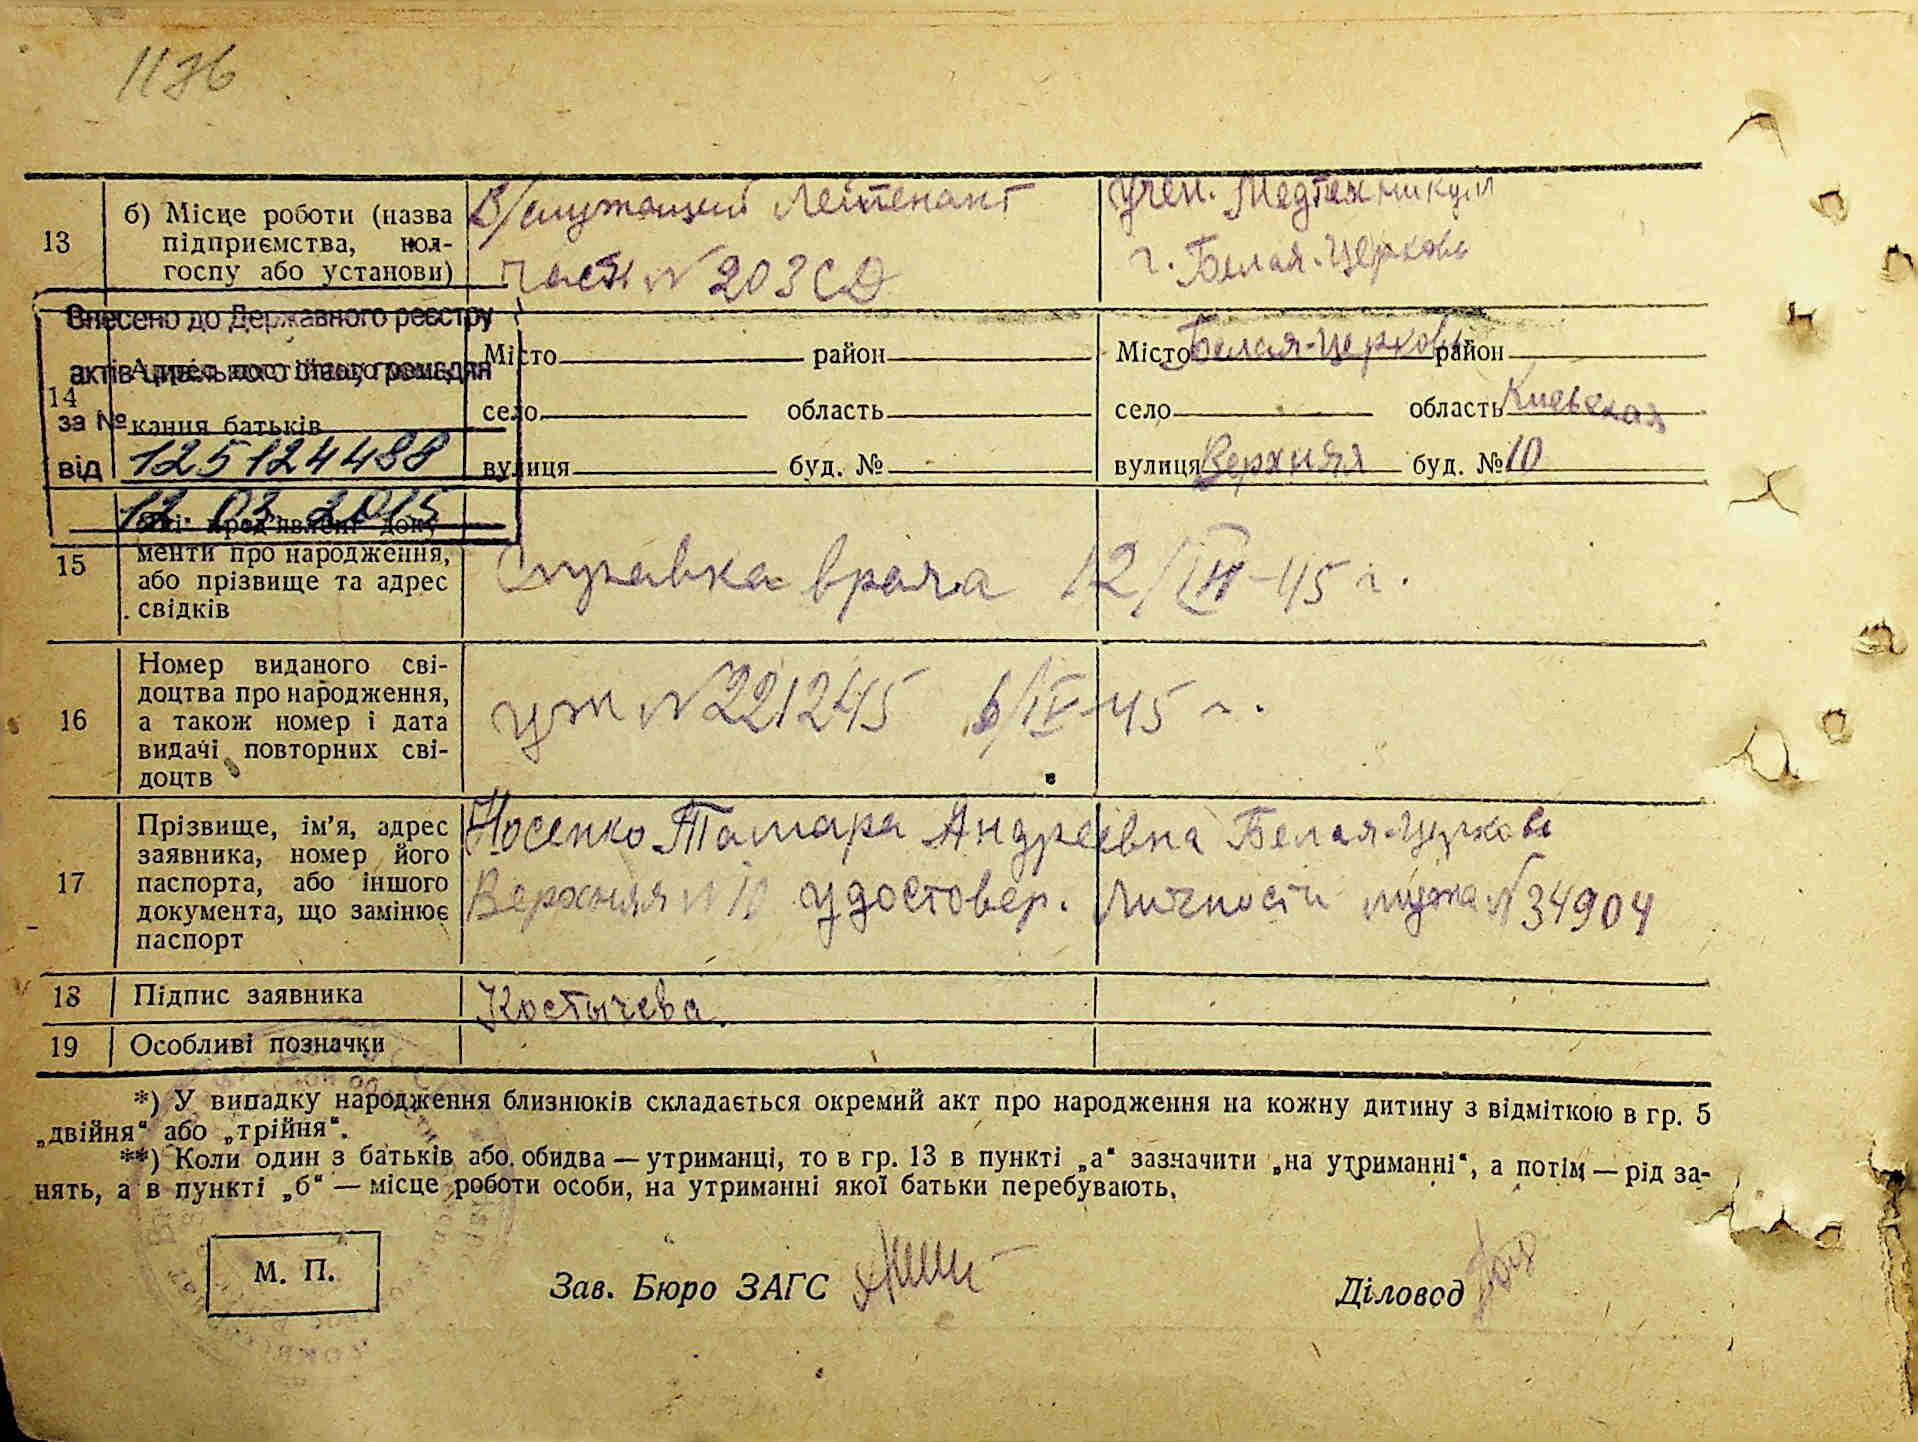 1176
13 б) Місце роботи (назва підприємства, кол-госпу або установи)
В/служащий Лейтенант
части №203 СД
Учен. Медтехникум
г. Белая-Церковь
Внесено до Державного реєстру
актів цивільного стану громадян
за №
125124488
від
12.03.2015
14
кання батьків
Місто район
село область
вулиця буд. №
Місто Белая-Церковь район
село область Киевская
вулиця Верхняя буд. № 10
15 Які пред'явлені доку-
менти про народження,
або прізвище та адрес
свідків
Справка врача 12/III-45 г.
16 Номер виданого сві-
доцтва про народження,
а також номер і дата
видачі повторних сві-
доцтв
№221245 6/IV-45 г.
17 Прізвище, ім'я, адрес
заявника, номер його
паспорта, або іншого
документа, що замінює
паспорт
Носенко Тамара Андреевна Белая-Церковь
Верхняя №10 удостовер. личности мужа №34904
18 Підпис заявника
Костычева
19 Особливі позначки
*) У випадку народження близнюків складається окремий акт про народження на кожну дитину з відміткою в гр. 5
„двійня“ або „трійня“.
**) Коли один з батьків або обидва — утриманці, то в гр. 13 в пункті „а“ зазначити „на утриманні“, а потім — рід за-
нять, а в пункті „б“ — місце роботи особи, на утриманні якої батьки перебувають.
М. П.
Зав. Бюро ЗАГС
Діловод